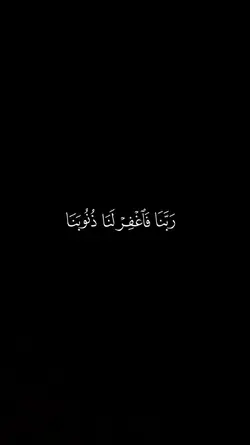 رَبَّنَا فَٱغْفِرْ لَنَا ذُنُوبَنَا